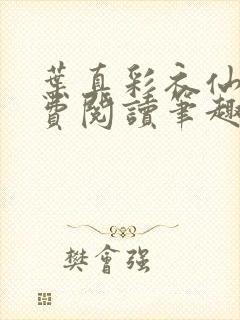 葉真彩衣仙
費閱讀筆趣
樊會强